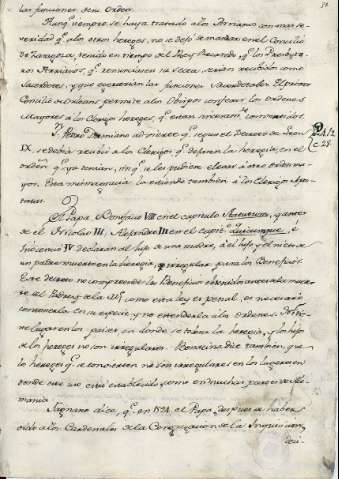 las funciones de su Orden.
Aunq.e siempre se haya tratado a los Arrianos con mas se-
veridad q.e a los otros hereges, no se dejó de mandar en el Concilio
de Zaragoza, tenido en tiempo del Rey Recaredo, q.e los Presbyte-
ros Arrianos, q.e renunciasen su Secta serian recibidos como
Sacerdotes, y que exercerian las funciones Sacerdotales. El primer
Concilio de Orleans permite a los Obispos conferir los ordenes
mayores a los Clerigos hereges, q.e estan convertidos.
S. Pedro Damiano advierte q.e segun el Decreto de Leon
IX. se deberá recibir a los Clerigos, q.e dejaren la heregia, en el
orden q.e ya tenian, sin q.e se les pudiese elevar a otro orden ma-
yor. Esta misma gracia la extiende tambien a los Clerigos Apos-
tatas.
El Papa Bonifacio VIII en el capitulo y antes
de el Nicolao III, Alexandro III en el capit.o Quicunque, e
Inocencio IV declaran al hijo de una madre, o el hijo y el nieto de
un padre muerto en la heregia, irregular para los Beneficios.
Este decreto no comprende los Beneficios obtenidos antes de la muer-
te del Padre, y como esta ley es penal, es necesario
contenerla en su especie y no extenderla a los ordenes.
lugar en los paises en donde se tolera la heregia, y los hijos
de los hereges no son irregulares. dice tambien, que
los hereges q.e se convierten no son irregulares en los lugares en
donde este uso está establecido, como en muchas partes de Ale-
mania.
Fagnano dice, q.e en el Papa, despues de haber
oido a los Cardenales de la Congregacion de la Inquisicion,